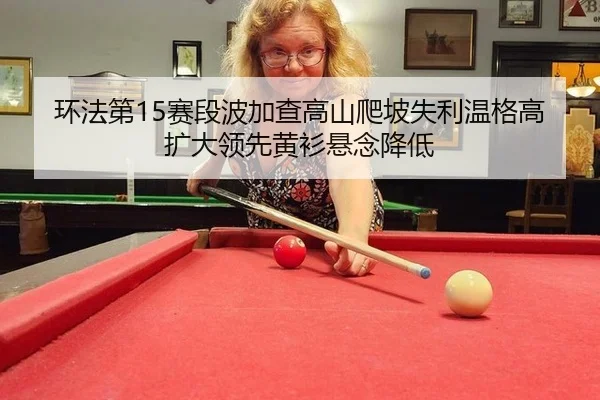 环法第15赛段波加查高山爬坡失利温格高
扩大领先黄衫悬念降低